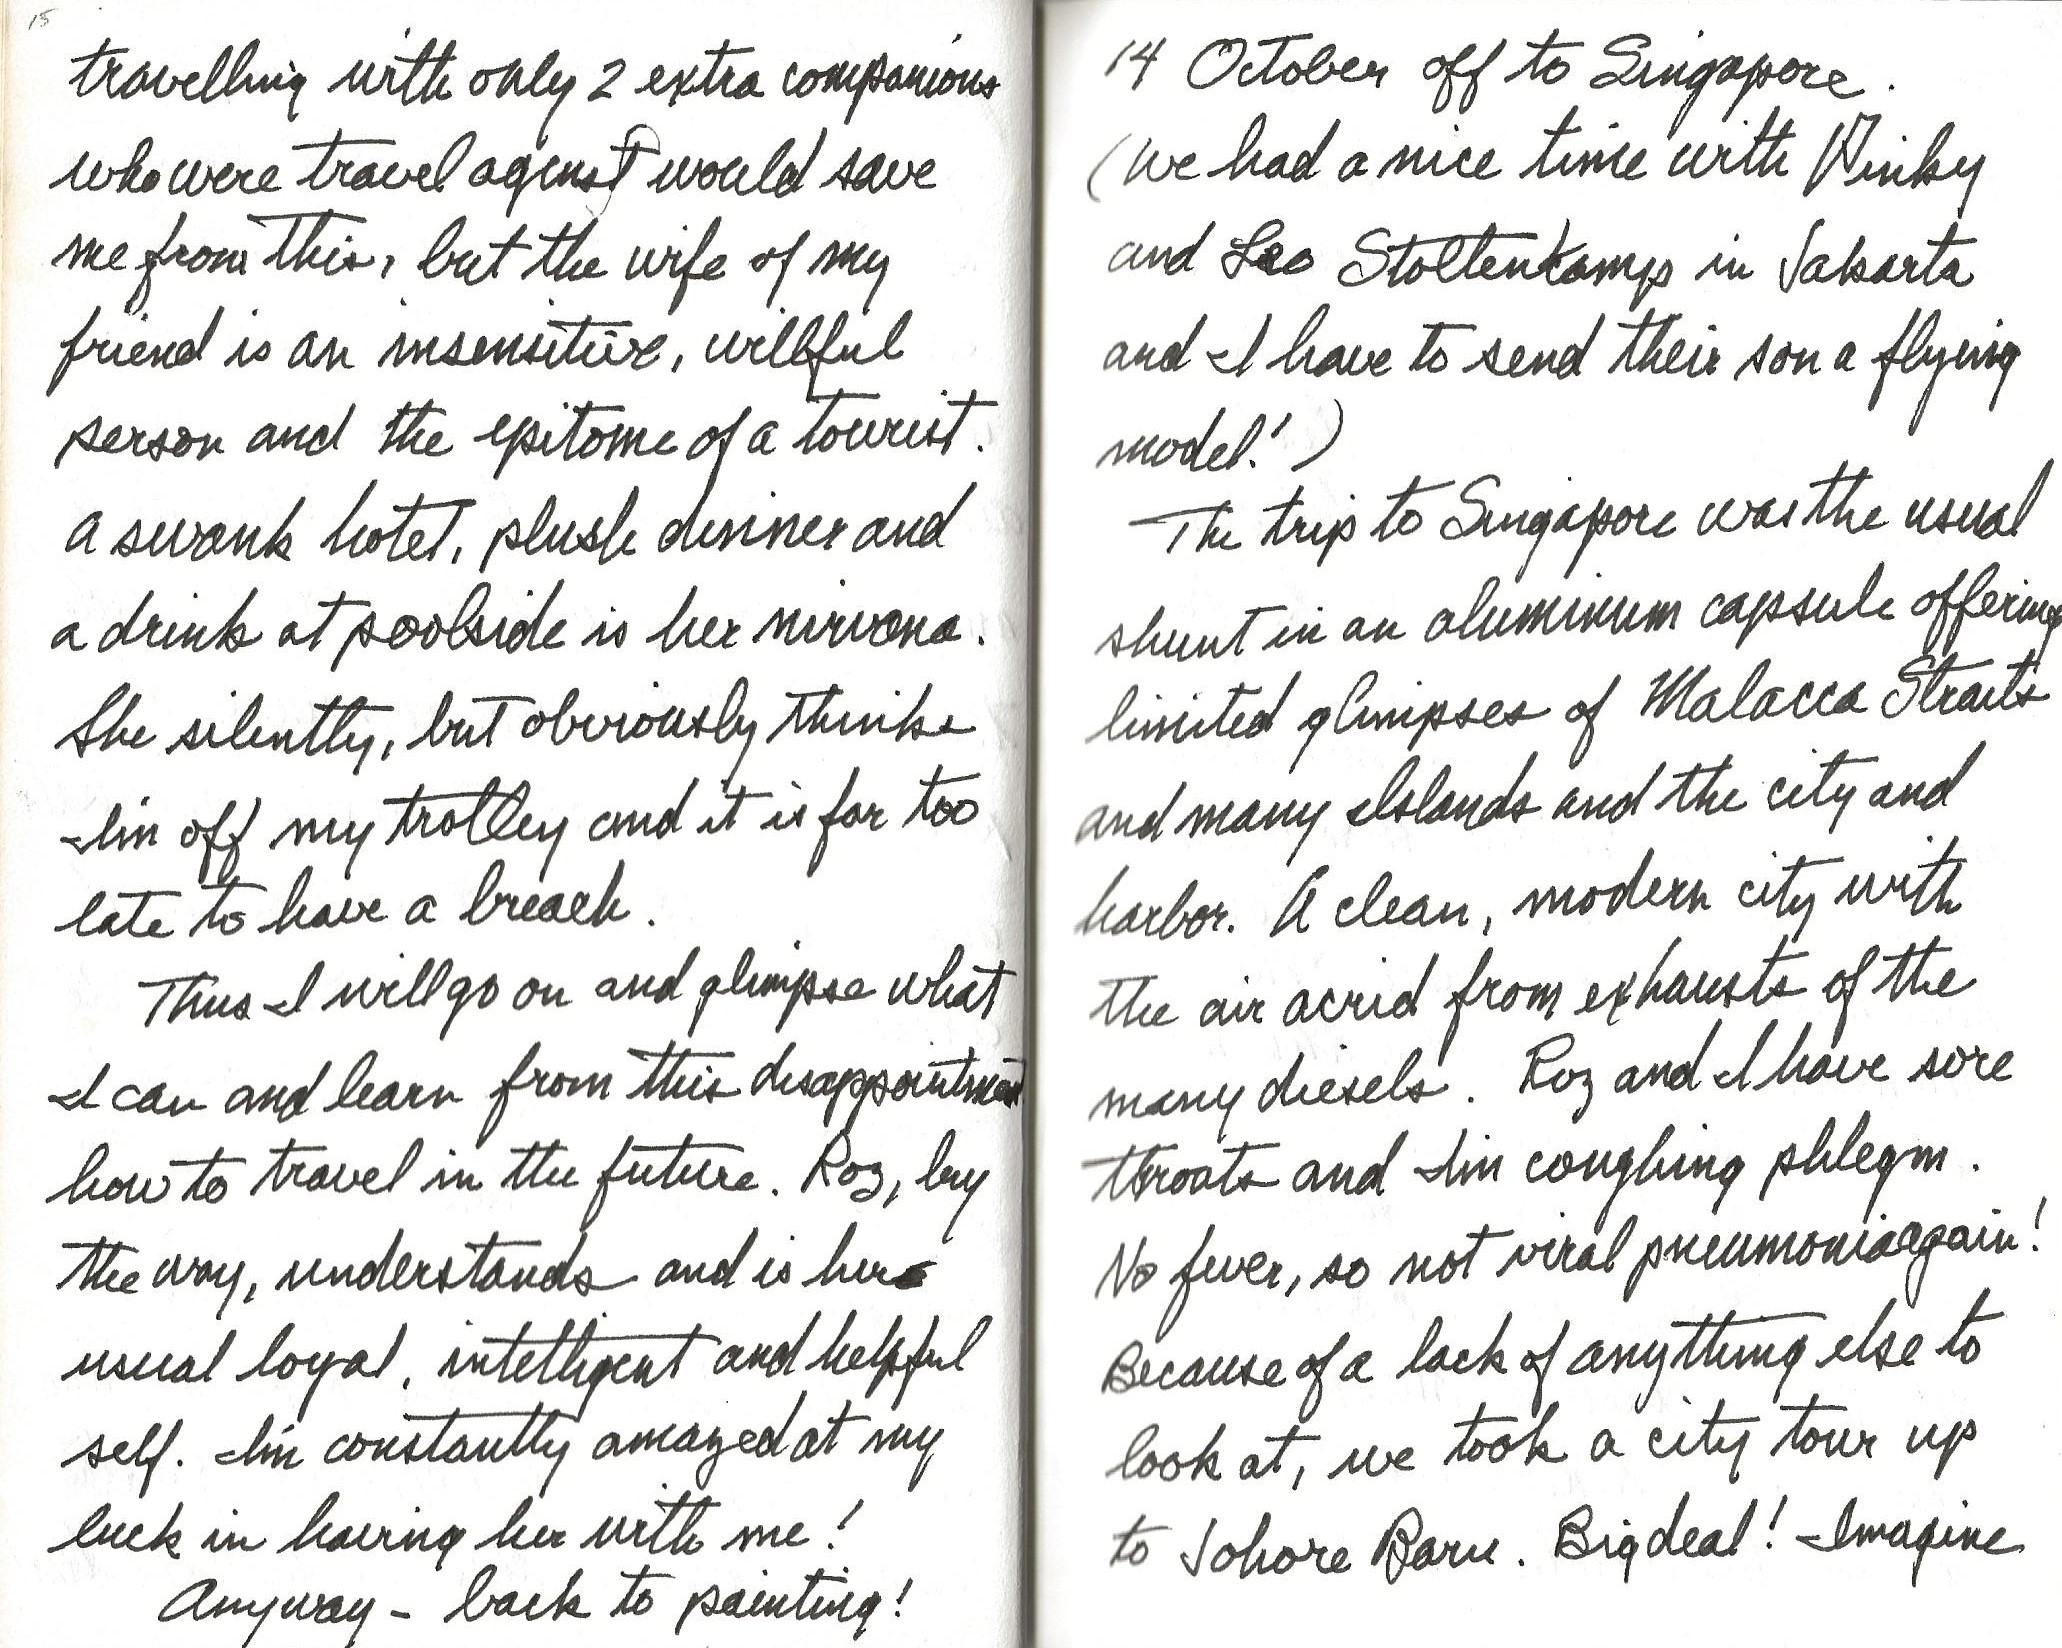 15
travelling with only 2 extra companions
who were travel agents would save
me from this, but the wife of my
friend is an insensitive, willful
person and the epitome of a tourist.
A swank hotel, plush dinner and
a drink at poolside is her nirvana.
She silently, but obviously thinks
I'm off my trolley and it is far too
late to have a breach.
Thus I will go on and glimpse what
I can and learn from this disappointment
how to travel in the future. Roz, by
the way, understands and is her
usual loyal, intelligent and helpful
self. I'm constantly amazed at my
luck in having her with me!
Anyway - back to painting!
14 October off to Singapore.
(We had a nice time with Winky
and Leo Stoltenkamp in Jakarta
and I have to send their son a flying
model!)
The trip to Singapore was the usual
shunt in an aluminum capsule offering
limited glimpses of Malacca Straits
and many Islands and the city and
harbor. A clean, modern city with
the air acrid from exhausts of the
many diesels. Roz and I have sore
throats and I'm coughing phlegm.
No fever, so not viral pneumonia again!
Because of a lack of anything else to
look at, we took a city tour up
to Johore Baru. Big deal! Imagine